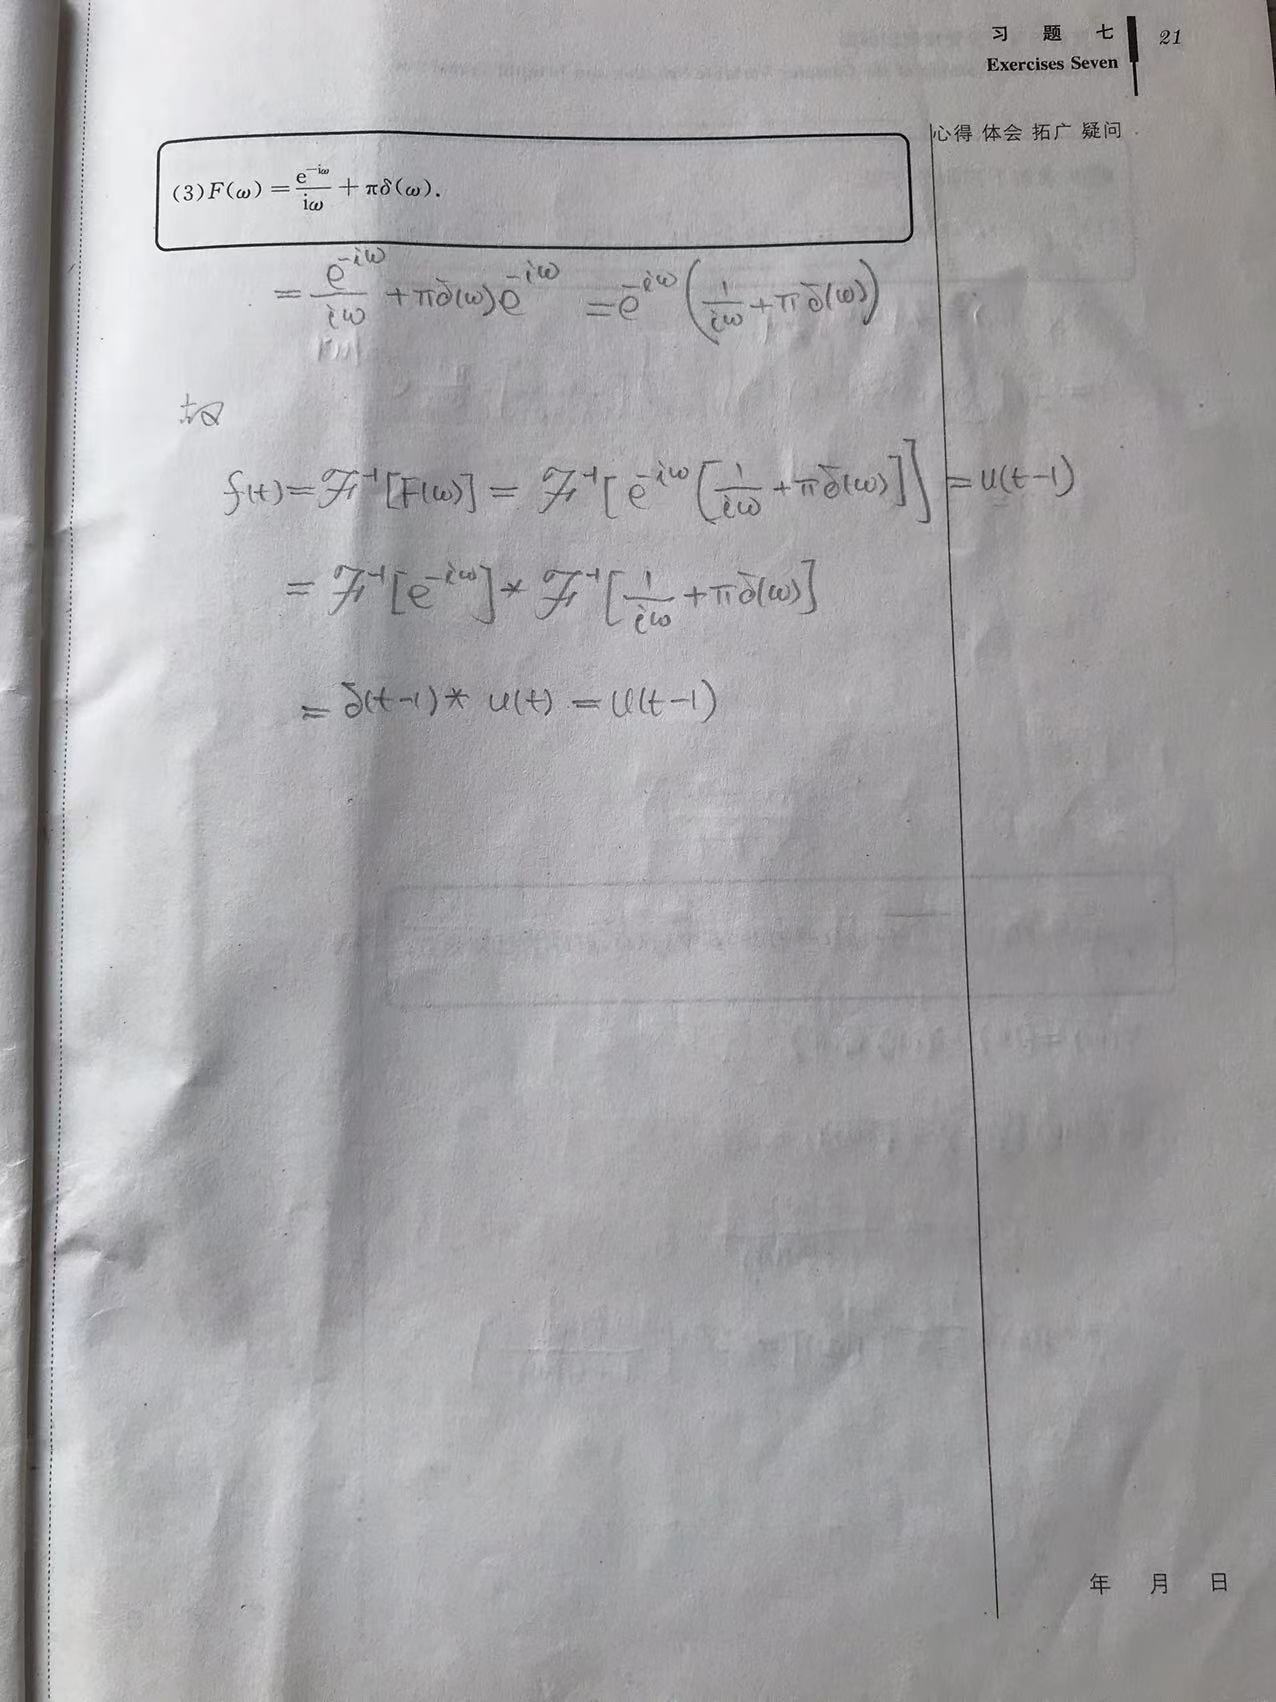 习 题 七 21
Exercises Seven
心得 体会 拓广 疑问
(3)F(ω)=e^{-iω}/iω+πδ(ω).
=e^{-iω}/iω+πδ(ω)e^{-iω} =e^{-iω}(1/iω+πδ(ω))
故
f(t)=ℱ^{-1}[F(ω)]=ℱ^{-1}[e^{-iω}[1/iω+πδ(ω)]]=u(t-1)
=ℱ^{-1}[e^{-iω}]*ℱ^{-1}[1/iω+πδ(ω)]
=δ(t-1)*u(t)=u(t-1)
年 月 日